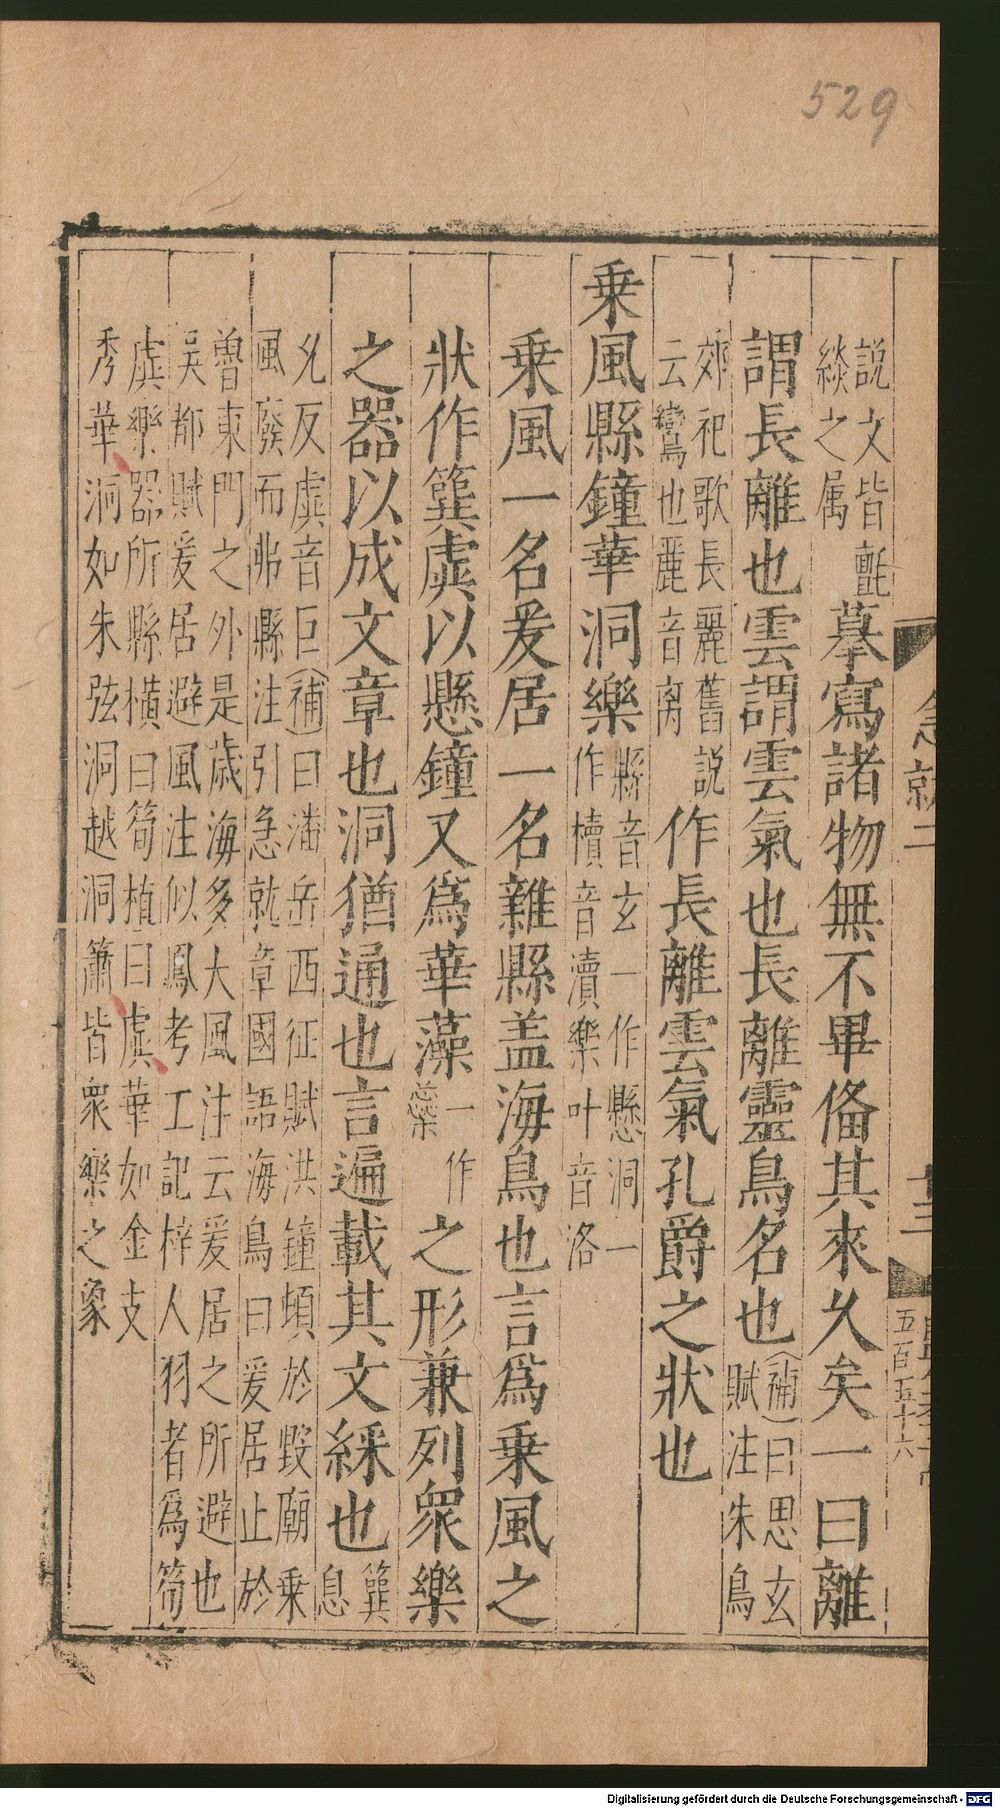 529
說文皆氈
緂之属
摹寫諸物無不畢俻其來乆矣一曰離
謂長離也雲謂雲氣也長離靈鳥名也
補曰思玄
賦注朱鳥
郊祀歌長麗舊說
云鸞也麗音离
作長離雲氣孔爵之狀也
乗風縣鐘華洞樂
縣音玄一作懸洞一
作櫝音瀆樂叶音洛
乗風一名爰居一名雜縣盖海鳥也言爲乗風之
狀作簨虡以懸鐘又爲華藻
一作
蘂
之形兼列衆樂
之器以成文章也洞猶通也言遍載其文綵也
簨
息
允反虡音巨補曰潘岳西征賦洪鐘頓於毀廟乗
風廢而弗縣注引急就章國語海鳥曰爰居止於
魯東門之外是歲海多大風注云爰居之所避也
吴都賦爰居避風注似鳳考工記梓人羽者爲筍
虡樂器所縣橫曰筍植曰虡華如金支
秀華洞如朱弦洞越洞簫皆衆樂之象
急就二
十三
五百五十六
Digitalisierung gefördert durch die Deutsche Forschungsgemeinschaft - DFG